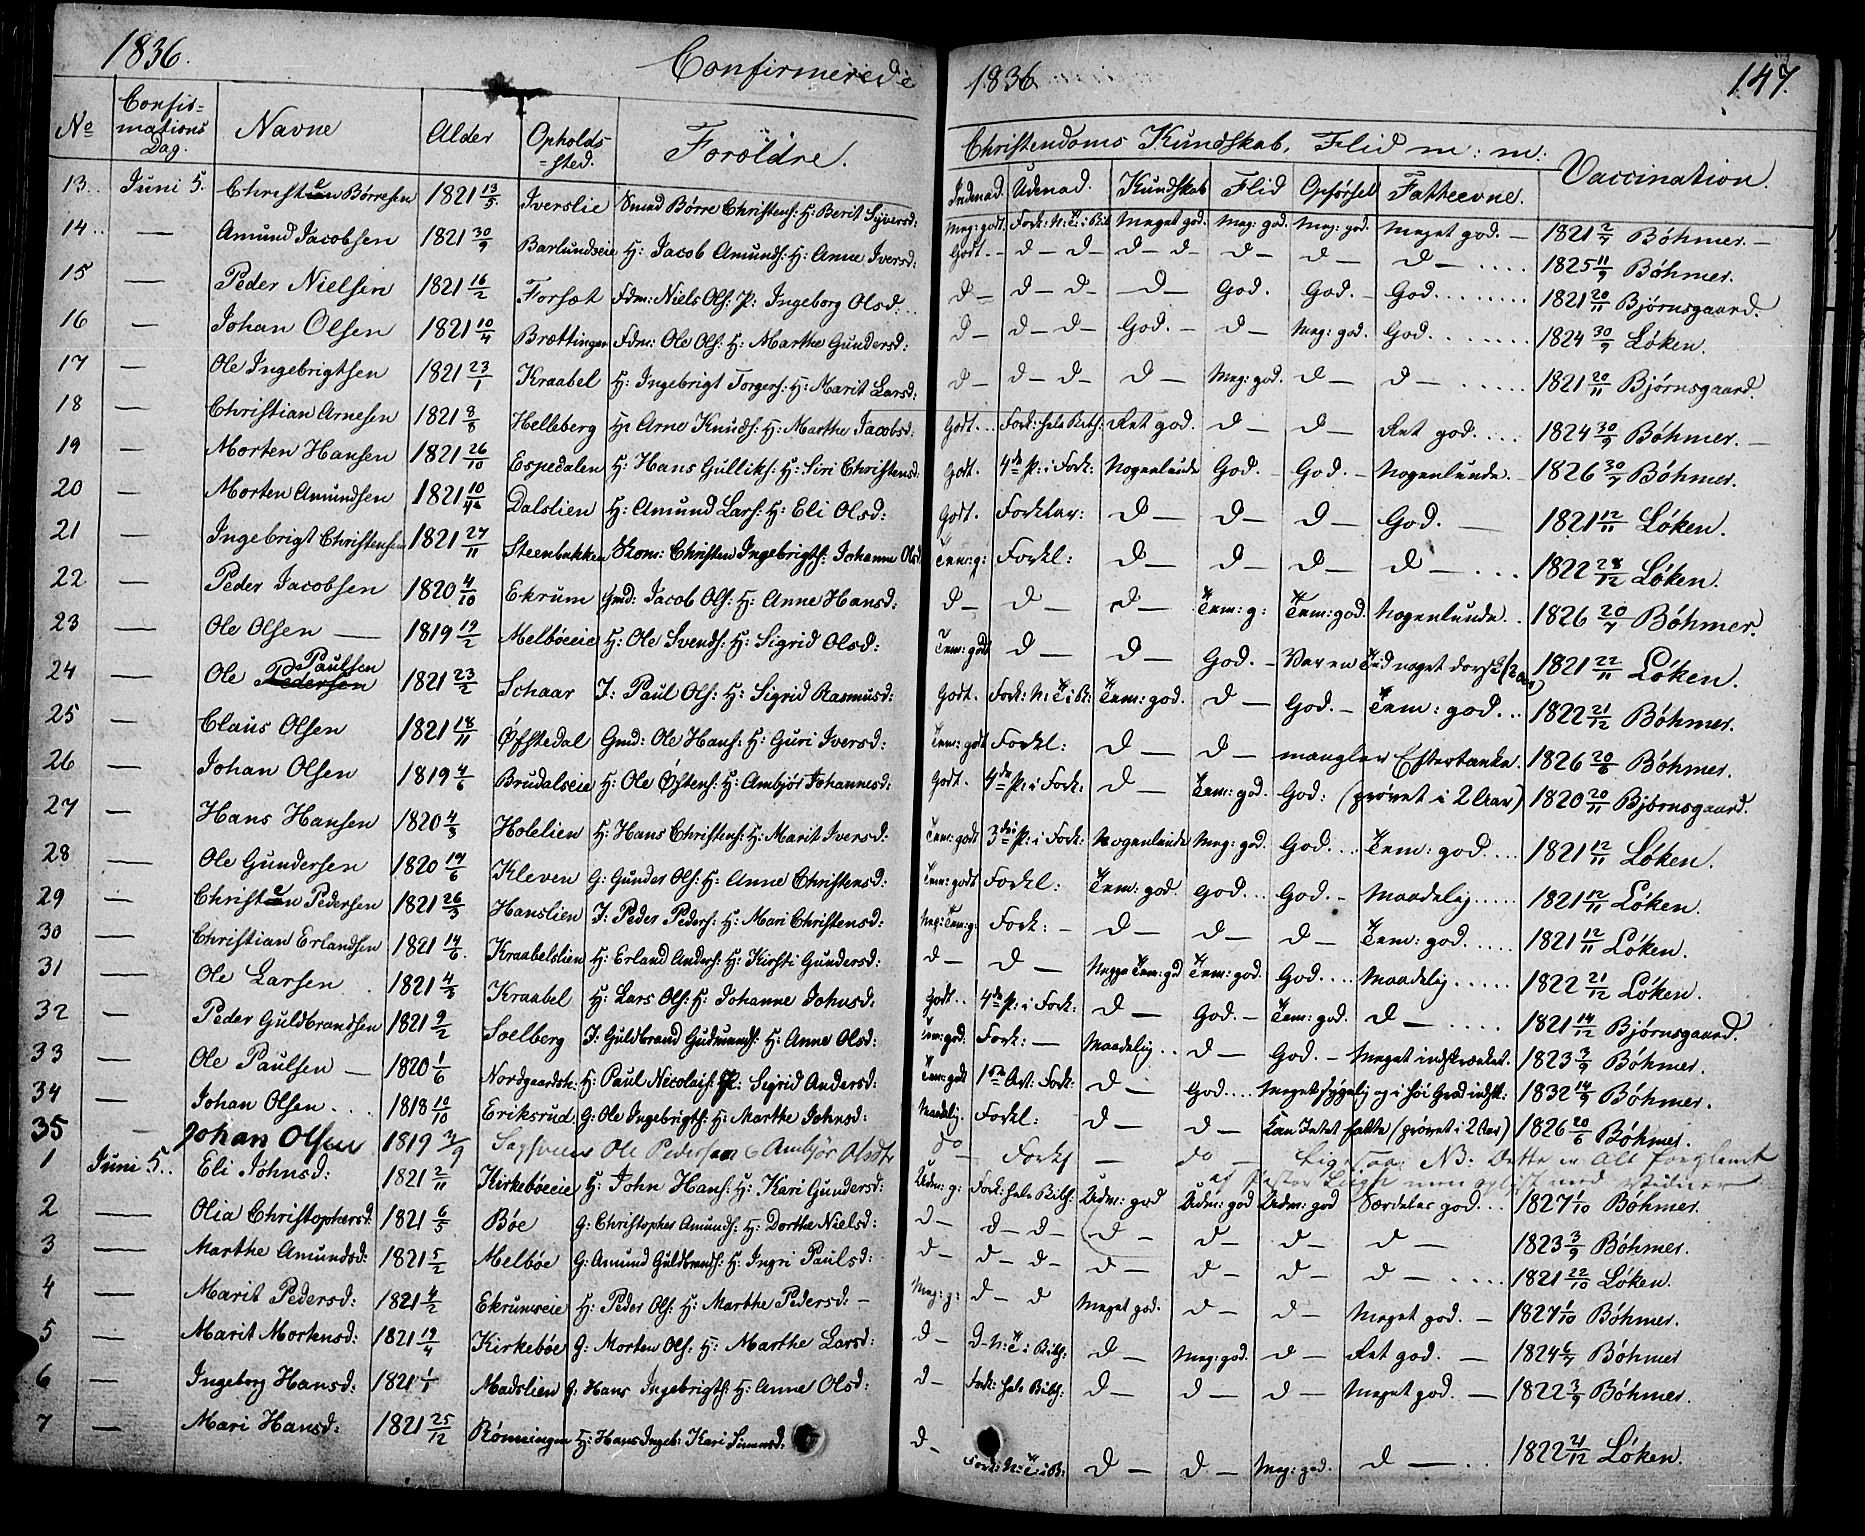 1836.
Confirmerede
1836
147.
No
Confir=
mations
Dag.
Navne
Alder
Opholds
=sted.
Forældre.
Christendoms Kundskab, Flid m: m:
Indenad.
Udenad.
Kundskab
Flid
Opførsel
Fatteevne.
Vaccination.
13.. Juni 5. Christen Børresen 1821 13/5 Iverslie Smed Børre Christens: H: Berit Syversd: Meg: godt. Fork: N: T: i Bib Meget god. Meg: god. Meg: god. Meget god. — 1821 2/7 Bøhmer. —
14.. — Amund Jacobsen 1821 30/9 Barlundseie H: Jacob Amunds: H: Anne Iversd: Godt. — d — d — d — d — d — d — d — .... 1825 11/9 Bøhmer.
15 — Peder Nielsen 1821 16/2 Forsæt Fdm: Niels Ols: P: Ingeborg Olsd: .. d — d — d — d — God. God. — God. ........ 1821 20/11 Bjørnsgaard.
16 — Johan Olsen 1821 10/4 Brættingen Fdm: Ole Ols: H: Marthe Gundersd: d — d — d — God. — d — Meg: god. God. ....... 1824 30/9 Løken.
17 — Ole Ingebrigtsen 1821 23/1 Kraabel H: Ingebrigt Torgers: H: Marit Larsd: d — d — d — d — Meg: god. d — d — ..... 1821 20/11 Bjørnsgaard.
18 — Christian Arnesen 1821 8/8 Helleberg H: Arne Knuds: H: Marthe Jacobsd: Godt... Fork: hele Bibh: Ret god. d — d — Ret god. .... 1824 30/9 Bøhmer. —
19 — Morten Hansen 1821 26/10 Espedalen H: Hans Gulliks: H: Siri Christensd: Godt. 4de P: i Fork: Nogenlunde God. — God. — Nogenlunde. — 1826 30/7 Bøhmer.
20 — Morten Amundsen 1821 10/12 Dalslien H: Amund Lars: H: Eli Olsd: Godt. Forklar: d — d — d — God. — 1821 12/11 Løken.
21 — Ingebrigt Christensen 1821 27/11 Steenbakken Skom: Christen Ingebrigts: Johanne Olsd Tem: g: Forkl: d — d — d — d — ... 1822 28/12 Løken.
22 — Peder Jacobsen 1820 4/10 Ekrum Gmd: Jacob Ols: H: Anne Hansd: d — d — d — Tem: g: Tem: god. Nogenlunde.. 1826 20/7 Bøhmer.
23 — Ole Olsen — 1819 19/2 Melbøeeie H: Ole Svends: H: Sigrid Olsd: Tem: godt d — d — God. — Var en Tid noget dorsk (2 Aar) 1821 22/11 Løken.
24 — Ole Paulsen 1821 23/2 Schaar I: Paul Ols: H: Sigrid Rasmusd: Godt. Fork: N: T: i B: Tem: god. d — God. — Tem: god... 1822 21/12 Bøhmer.
25 — Claus Olsen 1821 18/11 Øfstedal Gmd: Ole Hans: H: Guri Iversd: Tem: godt Forkl: d — d — mangler Eftertanke. 1826 20/6 Bøhmer.
26 — Johan Olsen 1819 4/6 Brudalseie H: Ole Østens: H: Ambjør Johannesd: Godt. 4de P: i Fork: d — Tem: god. God: (prøvet i 2 Aar) 1820 20/11 Bjørnsgaard.
27 — Hans Hansen 1820 4/3 Holelien H: Hans Christens: H: Marit Iversd: Tem: godt 3die P: i Fork: Nogenlunde Meg: god. God... Tem: god.... 1821 12/11 Løken.
28 — Ole Gundersen 1820 14/6 Kleven G: Gunder Ols: H: Anne Christensd: Tem: godt Forkl: Tem: god God... God. — Maadelig..... 1821 12/11 Løken.
29 — Christen Pedersen 1821 26/3 Hanslien I: Peder Peders: H: Mari Christensd: Meg: Tem: g: Fork: — d — d — d — Tem: god. .... 1821 12/11 Løken.
30 — Christian Erlandsen 1821 14/6 Kraabelslien H: Erland Anders: H: Kirsti Gundersd: d — d — Neppe Tem: god Tem: god. God.... Maadelig...... 1822 21/12 Løken.
31 — Ole Larsen . 1821 4/3 Kraabel H: Lars Ols: H: Johanne Johnsd: Godt.. 4de P: i Fork: d — God. — Tem: god. d — .... 1821 14/12 Bjørnsgaard.
32 — Peder Guldbrandsen 1821 9/2 Soelberg I: Guldbrand Gudmunds: H: Anne Olsd: Tem: god. Fork: — Maadelig.. d — God. — Meget indskrænket. 1823 3/9 Bøhmer.
33 — Ole Paulsen — 1820 1/6 Nordgaardsh: H: Paul Nicolais: P: Sigrid Andersd: Tem: godt 1ste Art: Fork: d — God.... Meget sygelig og i høi Grad indsk: 1832 14/9 Bøhmer.
34 — Johan Olsen.... 1818 10/10 Eriksrud G: Ole Ingebrigts: H: Marthe Johnsd: Maadelig. Forkl: d — d — Kan Intet fatte (prøvet i 2 Aar) 1826 20/6 Bøhmer.
35 — Johan Olsen 1819 2/9 Ole Pedersen Ambjør Olsdtr do Forkl — do — Ligesaa NB: Dette er Alt forglemt
af Pastor
1 Juni 5.. Eli Johnsd: 1821 2/11 Kirkebøeeie H: John Hans: H: Kari Gundersd: Udm: g: Fork: hele Bibh: Udm: god Udm: god Udm: god Særdeles god... 1827 1/10 Bøhmer.
2 — Olia Christophersd: 1821 6/5 Bøe G: Christopher Amunds: H: Dorthe Nielsd: d — d — d — d — d — d — d — 1823 3/9 Bøhmer.
3 — Marthe Amundsd: 1821 5/2 Melbøe G: Amund Guldbrands: H: Ingri Paulsd: d — d — d — d — d — d — d — .... 1821 22/10 Løken.
4 — Marit Pedersd: 1821 4/2 Ekrumseie H: Peder Ols: H: Marthe Pedersd: — Meg: g: d — d Meget god. d — d — Meget god. — 1827 1/10 Bøhmer.
5 — Marit Mortensd: 1821 19/4 Kirkebøe G: Morten Ols: H: Marthe Larsd: d — d — N: T: i Bibh: d — Meg: god. d — Ret god. — 1824 6/7 Bøhmer
6 — Ingeborg Hansd: 1821 1/1 Madslien G: Hans Ingebrigts: H: Anne Olsd: d — Fork: hele Bibh: d — d — d — Meget god. — 1822 3/9 Bøhmer.
7 — Mari Hansd: 1821 25/12 Rønningen H: Hans Ingeb: Kari Simensd: d — Fork: N: T: i B: d — d — Meg: god. d — .. 1822 21/12 Løken.